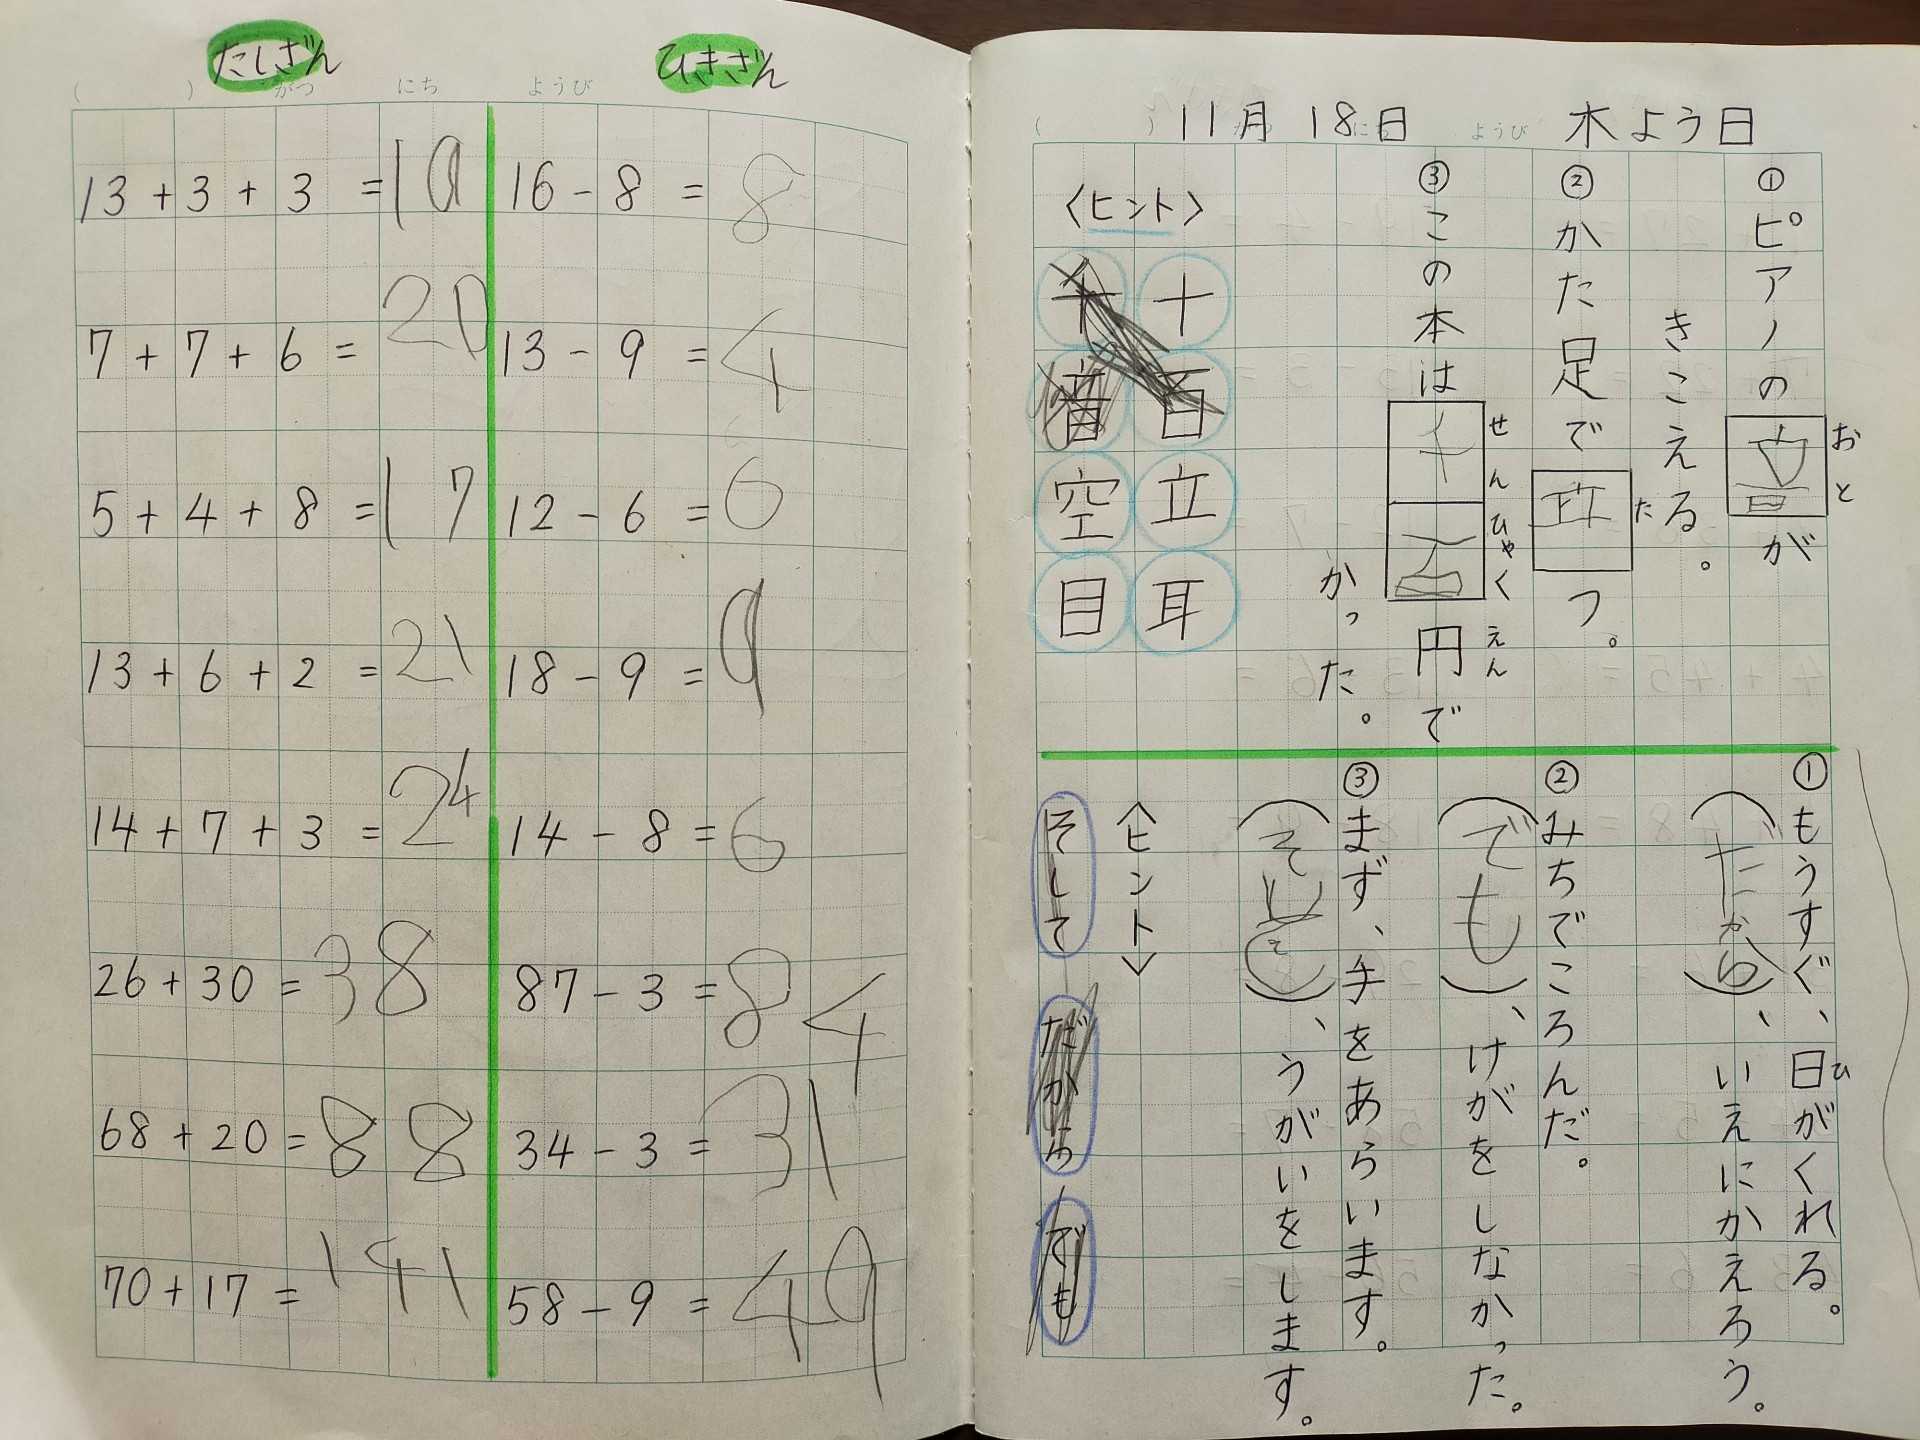 たしざん
ひきざん
( ) がつ にち ようび
13 + 3 + 3 = 19
7 + 7 + 6 = 20
5 + 4 + 8 = 17
13 + 6 + 2 = 21
14 + 7 + 3 = 24
26 + 30 = 38
68 + 20 = 88
70 + 17 =
16 - 8 = 8
13 - 9 = 4
12 - 6 = 6
18 - 9 = 9
14 - 8 = 6
87 - 3 = 84
34 - 3 = 31
58 - 9 = 49
( ) 11月 18日 木よう日
①ピアノの音が
おと
きこえる。
②かた足で つ。
た
③この本は千百円で
せんひゃくえん
かった。
〈ヒント〉
十 百 立 耳
千 音 空 目
①もうすぐ、日がくれる。
ひ
(だから)、いえにかえろう。
②みちでころんだ。
(でも)、けがをしなかった。
③まず、手をあらいます。
(そして)、うがいをします。
〈ヒント〉
そして だから でも